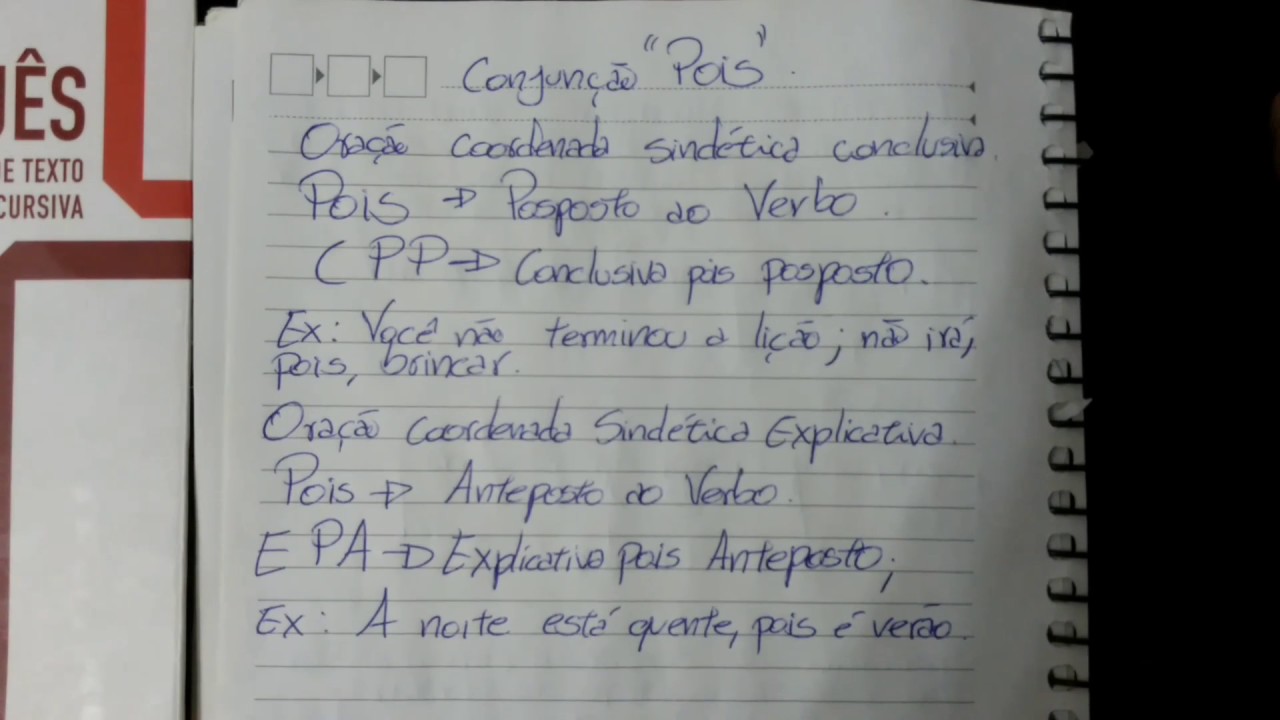 ÊS
E TEXTO
CURSIVA
Conjunção "Pois".
Oração coordenada sindética conclusiva.
Pois → Posposto ao Verbo.
CPP → Conclusiva pois posposto.
Ex: Você não terminou a lição; não irá,
pois, brincar.
Oração Coordenada Sindética Explicativa.
Pois → Anteposto ao Verbo.
EPA → Explicativa pois Anteposto;
Ex: A noite está quente, pois é verão.